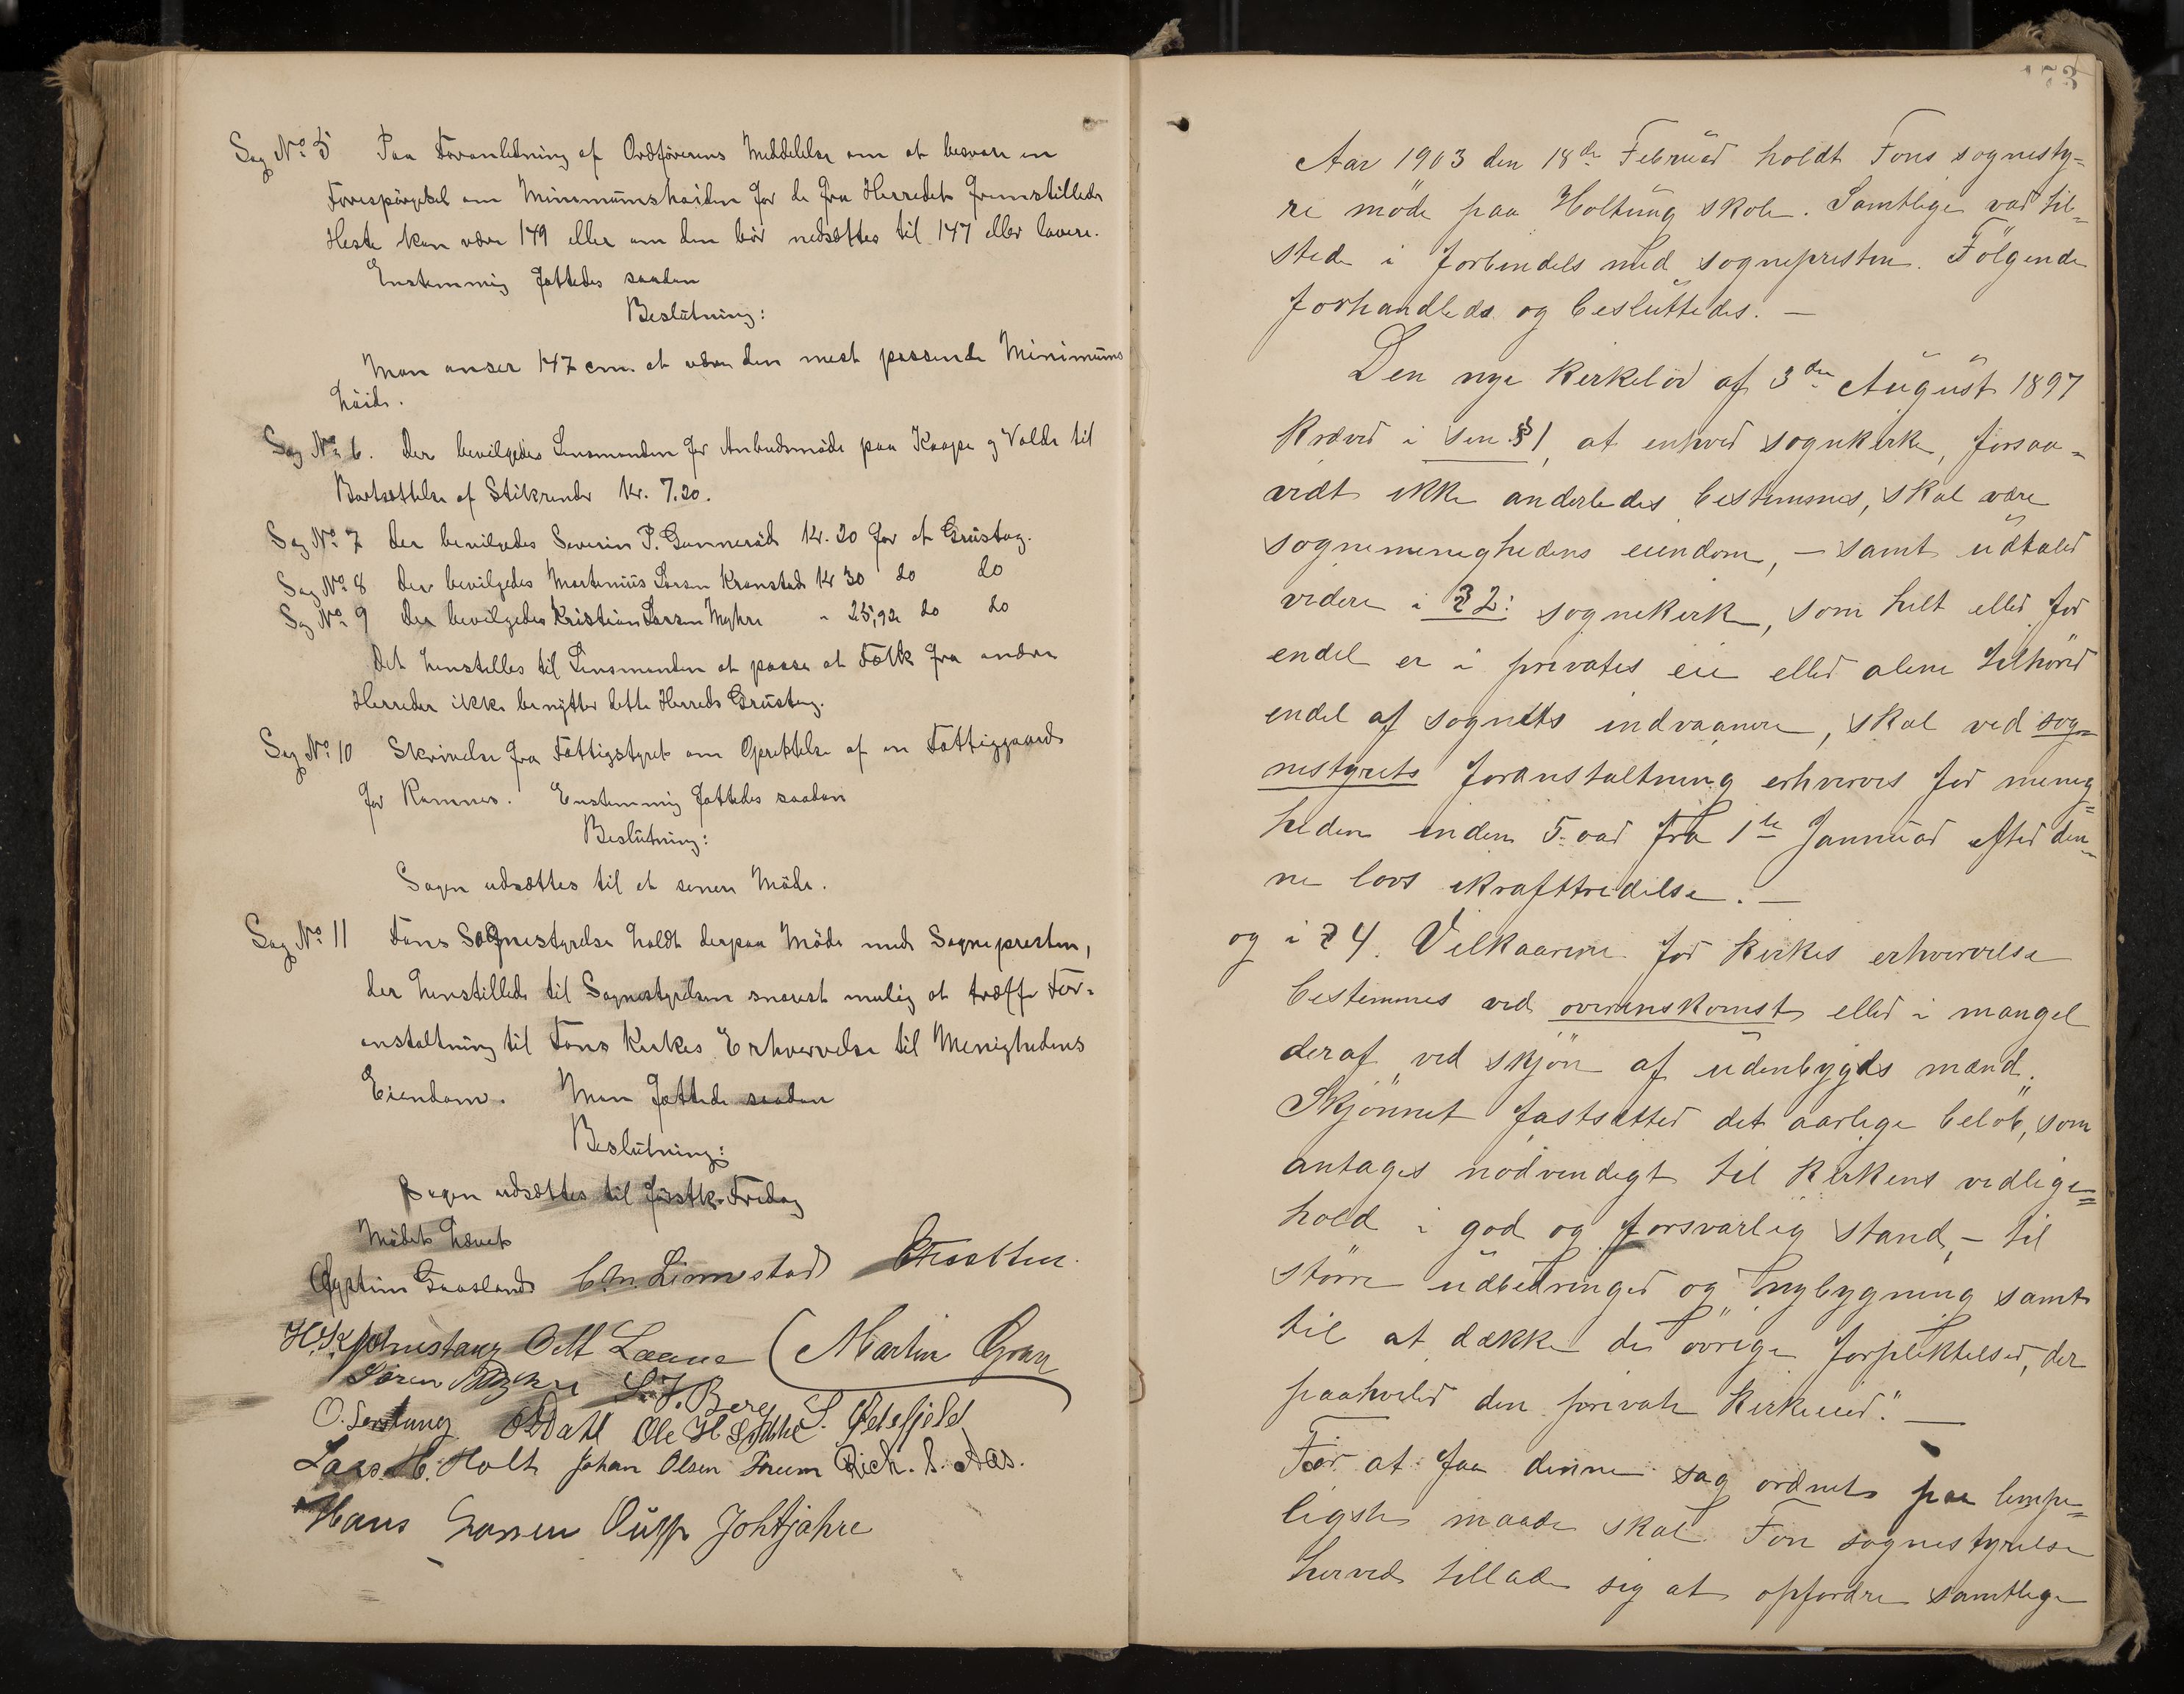 Sag No. 5 Paa Foranledning af Ordförerens Meddelelse om at besvare en
Forespörgsel om Minimumshöiden for de fra Herredet fremstillede
Heste kan være 149 eller om den bör nedsættes til 147 eller lavere.
Enstemmig fattedes saadan
Beslutning:
Man anser 147 cm. at være den mest passende Minimums
höide.
Sag No. 6. Der bevilgedes Lensmanden for Anbudsmöde paa Kaape og Volde til
Bortsættelse af Stikrender Kr. 7.20.
Sag No. 7 der bevilgedes Severin P. Gunneröd Kr. 20 for et Grustag.
Sag No. 8 der bevilgedes Martinius Larsen Kronstad Kr 30 do do
Sag No. 9 der bevilgedes Kristian Larsen Myhre " 25,92 do do
Det henstilles til Lensmanden at paase at Folk fra andre
Herreder ikke benytter dette Herreds Grustag.
Sag No. 10 Skrivelse fra Fattigstyret om Oprettelse af en Fattiggaard
for Ramnes. Enstemmig fattedes saadan
Beslutning:
Sagen udsættes til et senere Möde.
Sag No. 11 Fons Sognestyrelse holdt derpaa Möde med Sognepresten,
der henstillede til Sognestyrelsen snarest mulig at træffe For-
anstaltning til Fons Kirkes Erhvervelse til Menighedens
Eiendom. Man fattede saadan
Beslutning:
Sagen udsættes til förstk. Fredag
Mödet hævet
Gaasland Chr. Linnestad
Otto Laane Martin Gran
Sören Myhre L. J. Berg
O. Dahl Ole H.
Lars H. Holt Johan Olsen Rich. S. Aas.
Hans Larsen
173
Aar 1903 den 18de Februar holdt Fons sognesty-
re möde paa Holtung skole. Samtlige var til-
stede i forbindels med sognepresten. Fölgende
forhandledes og besluttedes. —
Den nye Kirkelov af 3die August 1897
Kræver i sin §1, at enhver sognekirke, forsaa-
vidt ikke anderledes bestemmes, skal være
sognemenighedens eiendom, — samt udtaler
videre i §2: sognekirke, som helt eller for
endel er i privates eie eller alene tilhörer
endel af sognets indvaanere, skal ved sog-
nestyrets foranstaltning erhverves for menig-
heden inden 5 aar fra 1te Januar efter den-
ne lovs ikrafttrædelse. —
og i § 4. Vilkaarene for Kirkes erhvervelse
bestemmes ved overenskomst eller i mangel
deraf ved skjön af udenbygds mænd.
Skjönnet fastsætter det aarlige belöb, som
antages nödvendigt til Kirkens vedlige-
hold i god og forsvarlig stand, — til
större udbedringer og nybygning samt
til at dække de övrige forpliktelser, der
paahviler den private Kirkeeier." —
For at faa denne sag ordnet paa lempe-
ligste maade skal Fon sognestyrelse
herved tillade sig at opfordre samtlige